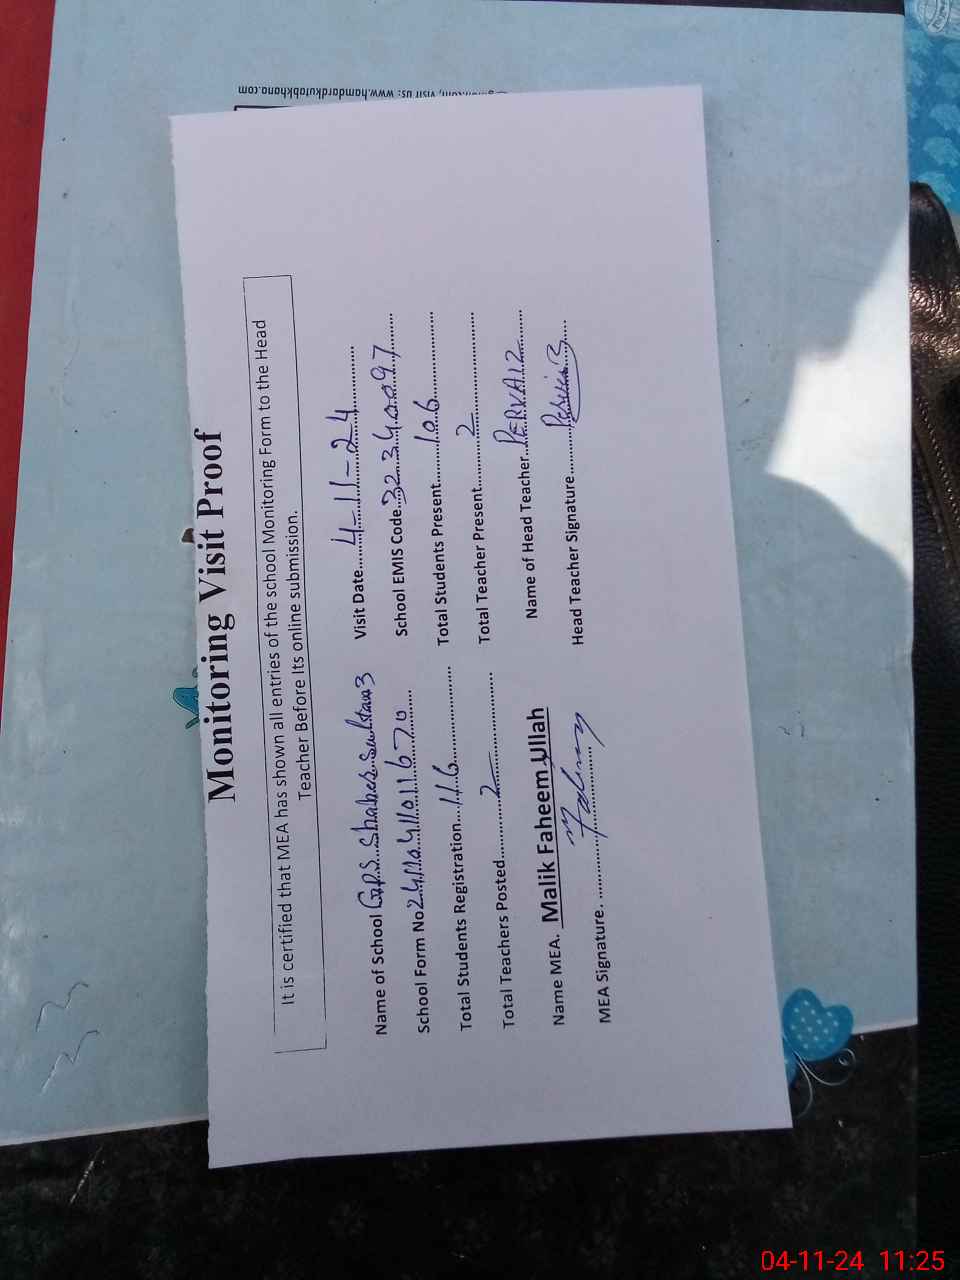 Monitoring Visit Proof
It is certified that MEA has shown all entries of the school Monitoring Form to the Head
Teacher Before Its online submission.
Name of School GPS Shaheb Sultan 3 Visit Date 4-11-24
School Form No School EMIS Code 32340097
Total Students Registration 116 Total Students Present 106
Total Teachers Posted 2 Total Teacher Present 2
Name MEA. Malik Faheem Ullah Name of Head Teacher PERVAIZ
MEA Signature. Faheem Head Teacher Signature Pervaiz
visit us: www.hamdardkutabkhana.com
04-11-24 11:25